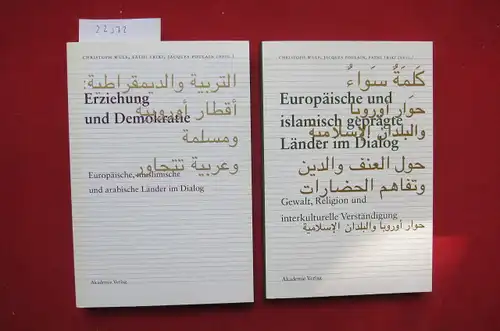 22372
CHRISTOPH WULF, FATHI TRIKI, JACQUES POULAIN (HRSG.)
التربية والديمقراطية:
Erziehung
أقطار أوروبية
und Demokratie
ومسلمة
وعربية تتحاور
Europäische, muslimische
und arabische Länder im Dialog
Akademie Verlag
CHRISTOPH WULF, JACQUES POULAIN, FATHI TRIKI (HRSG.)
كَلمَةٌ سَواءٌ
Europäische und
حوار أوروبا
islamisch geprägte
والبلدان الإسلامية
Länder im Dialog
حول العنف والدين
وتفاهم الحضارات
Gewalt, Religion und
interkulturelle Verständigung
حوار أوروبا والبلدان الإسلامية
Akademie Verlag